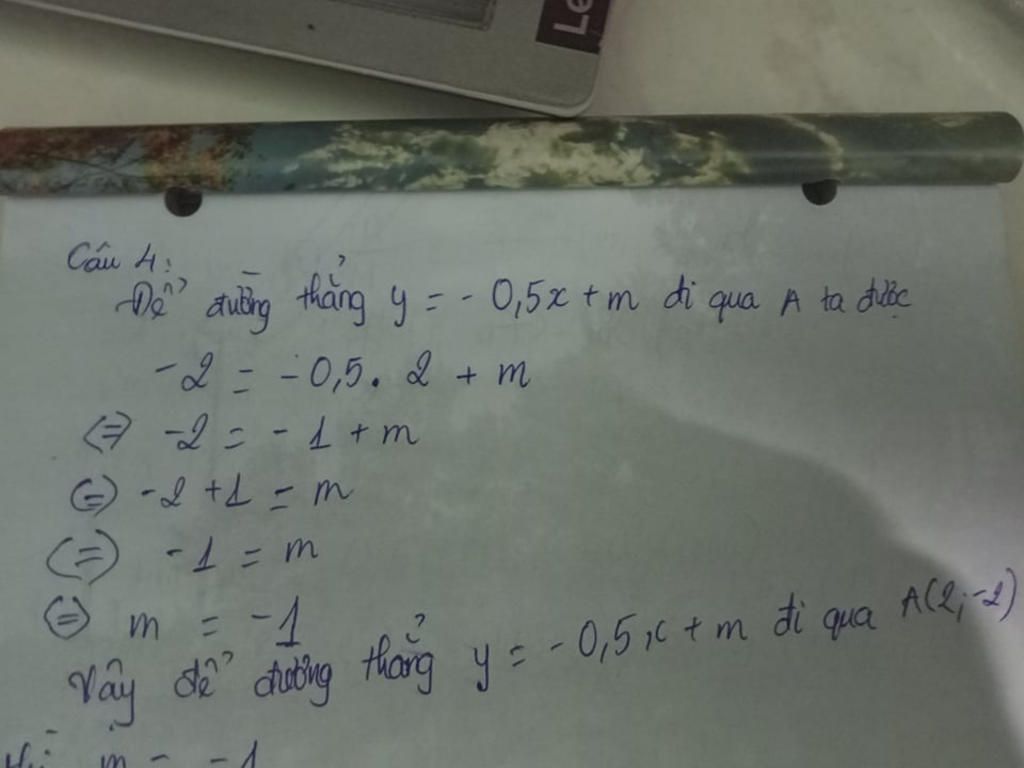 Le
Câu 4:
Để đường thẳng y = - 0,5x + m đi qua A ta được
-2 = - 0,5 . 2 + m
(=) -2 = - 1 + m
(=) -2 + 1 = m
(=) -1 = m
(=) m = -1
Vậy để đường thẳng y = - 0,5x + m đi qua A(2;-2)
thì m = -1